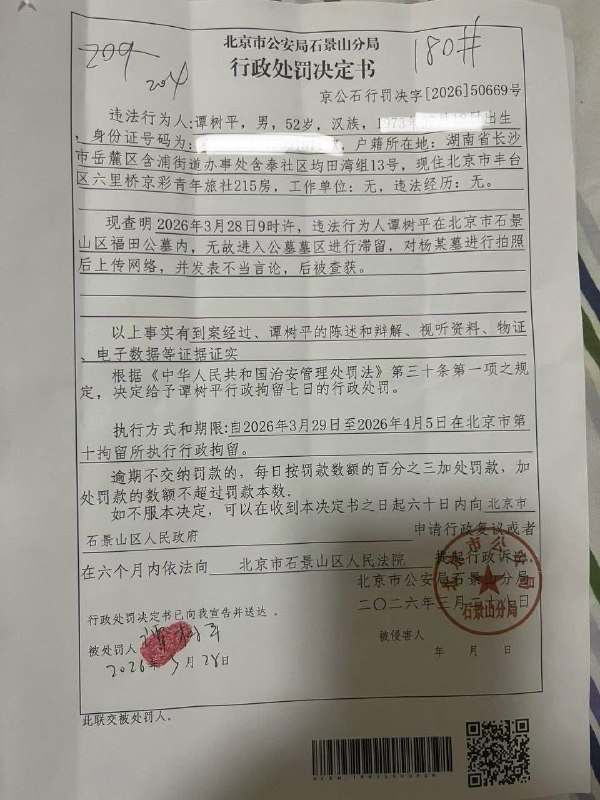 209
204
180#
北京市公安局石景山分局
行政处罚决定书
京公石行罚决字[2026]50669号
违法行为人:谭树平,男,52岁,汉族,出生
,身份证号码为:,户籍所在地:湖南省长沙
市岳麓区含浦街道办事处含泰社区均田湾组13号,现住北京市丰台
区六里桥京彩青年旅社215房,工作单位:无,违法经历:无。
现查明2026年3月28日9时许,违法行为人谭树平在北京市石景
山区福田公墓内,无故进入公墓墓区进行滞留,对杨某墓进行拍照
后上传网络,并发表不当言论,后被查获。
以上事实有到案经过、谭树平的陈述和辩解、视听资料、物证
、电子数据等证据证实
根据《中华人民共和国治安管理处罚法》第三十条第一项之规
定,决定给予谭树平行政拘留七日的行政处罚。
执行方式和期限:自2026年3月29日至2026年4月5日在北京市第
十拘留所执行行政拘留。
逾期不交纳罚款的,每日按罚款数额的百分之三加处罚款,加
处罚款的数额不超过罚款本数.
如不服本决定,可以在收到本决定书之日起六十日内向 北京市
石景山区人民政府 申请行政复议或者
在六个月内依法向 北京市石景山区人民法院 提起行政诉讼.
北京市公安局石景山分局
二〇二六年三月二十八日
石景山分局
行政处罚决定书已向我宣告并送达。
被处罚人
2026年3月28日
被侵害人
年 月 日
此联交被处罚人.